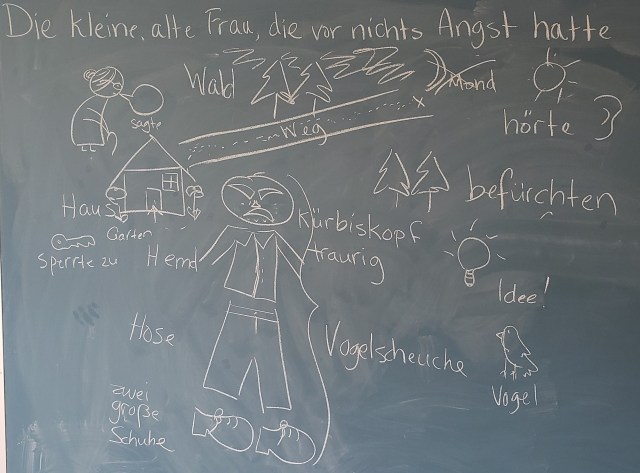 Die kleine, alte Frau, die vor nichts Angst hatte
Wald
Mond
sagte
Weg
x
hörte
Haus
Garten
befürchten
Kürbiskopf
traurig
Sperrte zu
Hemd
Idee!
Hose
Vogelscheuche
Vogel
zwei
große
Schuhe